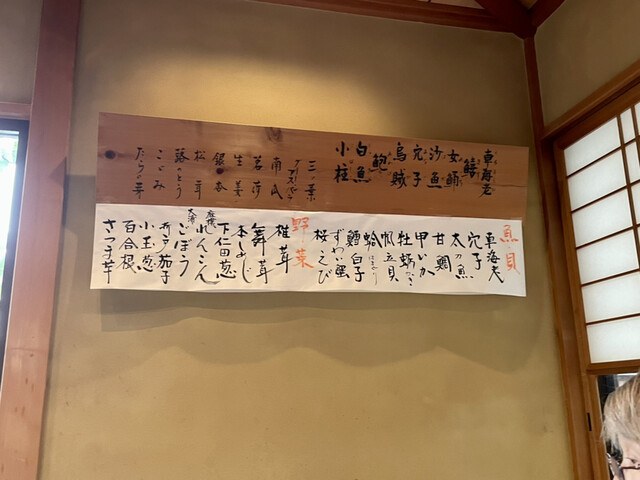 車海老
鱚
女鯒
沙魚
穴子
烏賊
鮑
白魚
小柱
三つ葉
アスパラ
茗荷
生姜
銀杏
松茸
蕗のとう
こごみ
たらの芽
魚貝
車海老
穴子
太刀魚
甘鯛
甲いか
牡蠣
帆立貝
蛤
鱈白子
ずわい蟹
桜えび
野菜
椎茸
舞茸
本しめじ
下仁田葱
れんこん
大浦
ごぼう
茄子
小玉葱
百合根
さつま芋